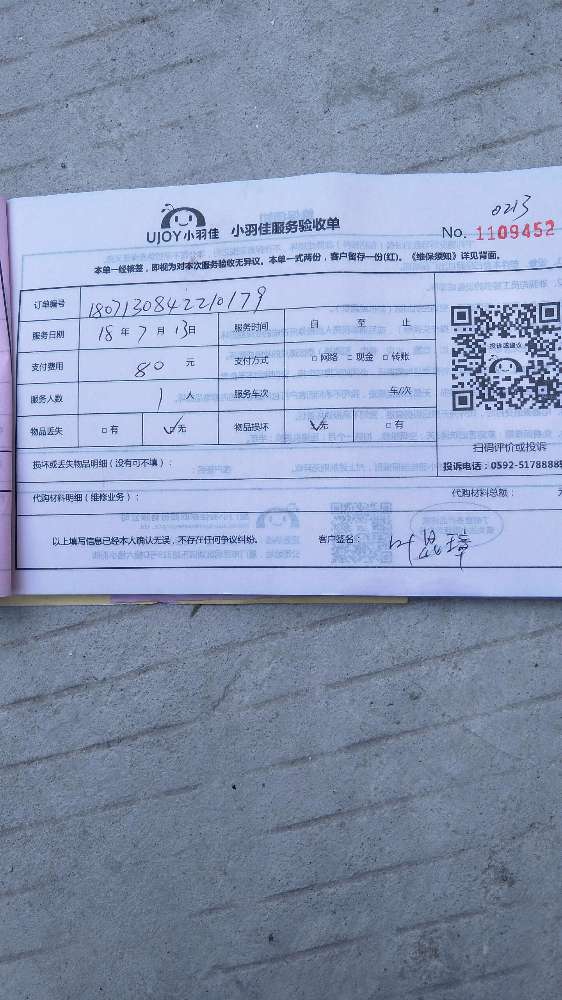 0213
UJOY小羽佳 小羽佳服务验收单 No. 1109452
本单一经核签，即视为对本次服务验收无异议。本单一式两份，客户留存一份(红)。《维保须知》详见背面。
订单编号 1807130842210179
服务日期 18 年 7 月 13 日 服务时间 自 至 止
支付费用 80 元 支付方式 □网络 □现金 □转账
服务人数 1 人 服务车次 车/次
物品丢失 □有 ☑无 物品损坏 ☑无 □有
投诉或建议
扫码评价或投诉
投诉电话：0592-5178885
损坏或丢失物品明细（没有可不填）：
代购材料明细（维修业务）： 代购材料总额：
以上填写信息已经本人确认无误，不存在任何争议纠纷。 客户签名：